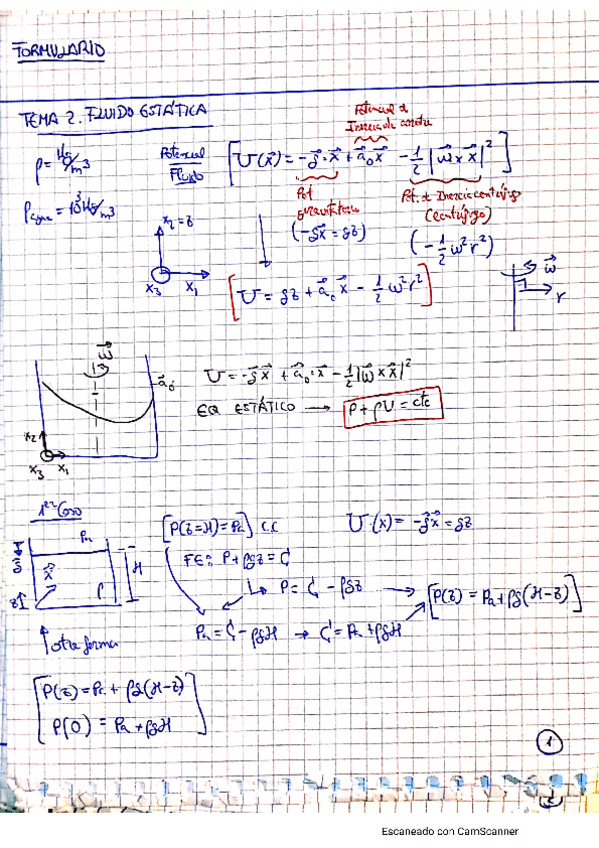 FORMULARIO
TEMA 2. FLUIDO ESTÁTICA
ρ = Kg/m³
ρagua = 10³ Kg/m³
Potencial Fluido
Potencial de Inercia de arrastre
[U(x⃗) = -g⃗·x⃗ + a⃗₀x⃗ - 1/2 |ω⃗ x x⃗|²]
Pot gravitatorio
(-g⃗x⃗ = gz)
Pot. de Inercia centrífugo (centrífugo)
(-1/2 ω²r²)
x₂=z
x₃ x₁
[U = gz + a⃗₀x⃗ - 1/2 ω²r²]
ω⃗
r
ω⃗
a⃗₀
x₂
x₃ x₁
U = -g⃗x⃗ + a⃗₀·x⃗ - 1/2|ω⃗ x x⃗|²
EQ ESTÁTICO → P + ρU = cte
1er Caso
[P(z=H) = Pa] C.C
U(x) = -g⃗x⃗ = gz
Pa
g⃗
x⃗
H
z
ρ
FE: P + ρgz = C
↳ P = C - ρgz → [P(z) = Pa + ρg(H-z)]
Pa = C - ρgH → C = Pa + ρgH
otra forma
[P(z) = Pa + ρg(H-z)
P(0) = Pa + ρgH]
1
Escaneado con CamScanner